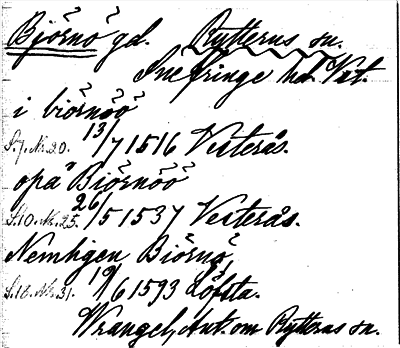 Björnö gd. Rytterns sn.
Snefringe hd. Vst.
i biörnöö
S.7. Nr. 20. 13/7 1516 Vesterås.
opå Biörnöö
S.10. Nr. 25. 26/5 1537 Vesterås.
Nemligen Biörnö
S.18. Nr. 31. 19/6 1593 Löfsta.
Wrangel, Ant. om Rytterns sn.